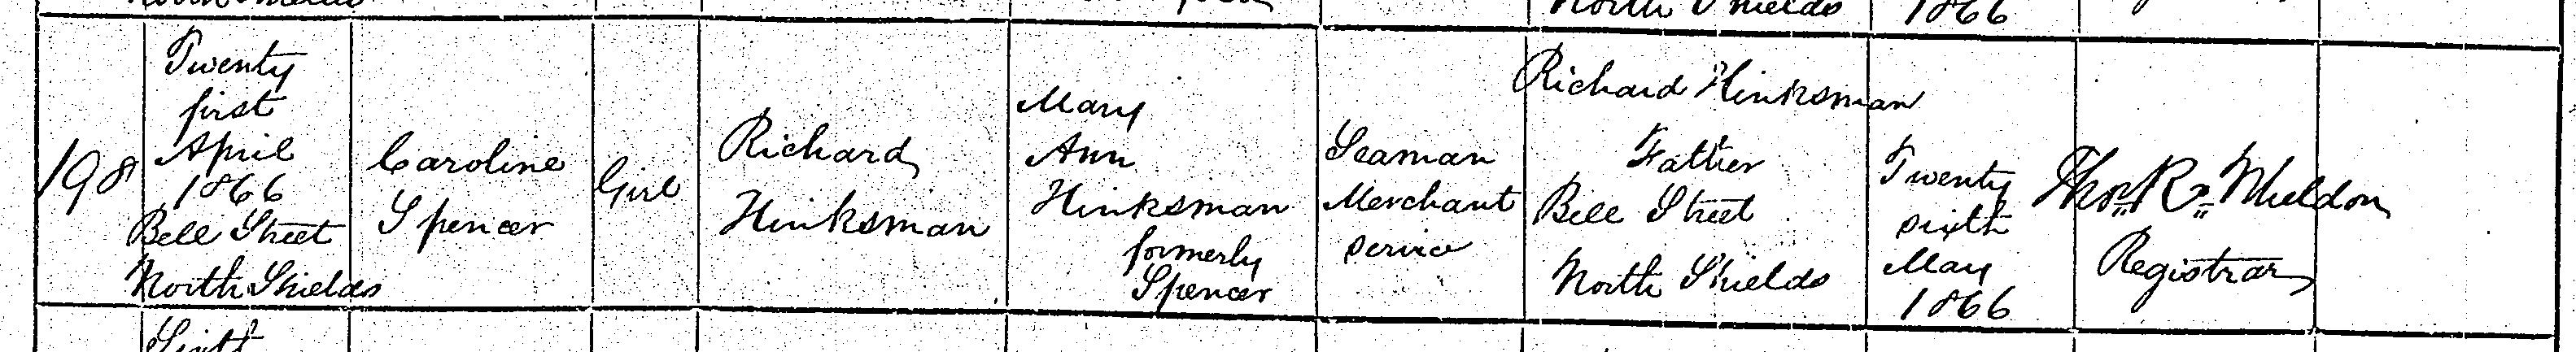 North Shields
1866
198
Twenty
first
April
1866
Bell Street
North Shields
Caroline
Spencer
Girl
Richard
Hinksman
Mary
Ann
Hinksman
formerly
Spencer
Seaman
Merchant
service
Richard Hinksman
Father
Bell Street
North Shields
Twenty
sixth
May
1866
Thos. R.
Registrar